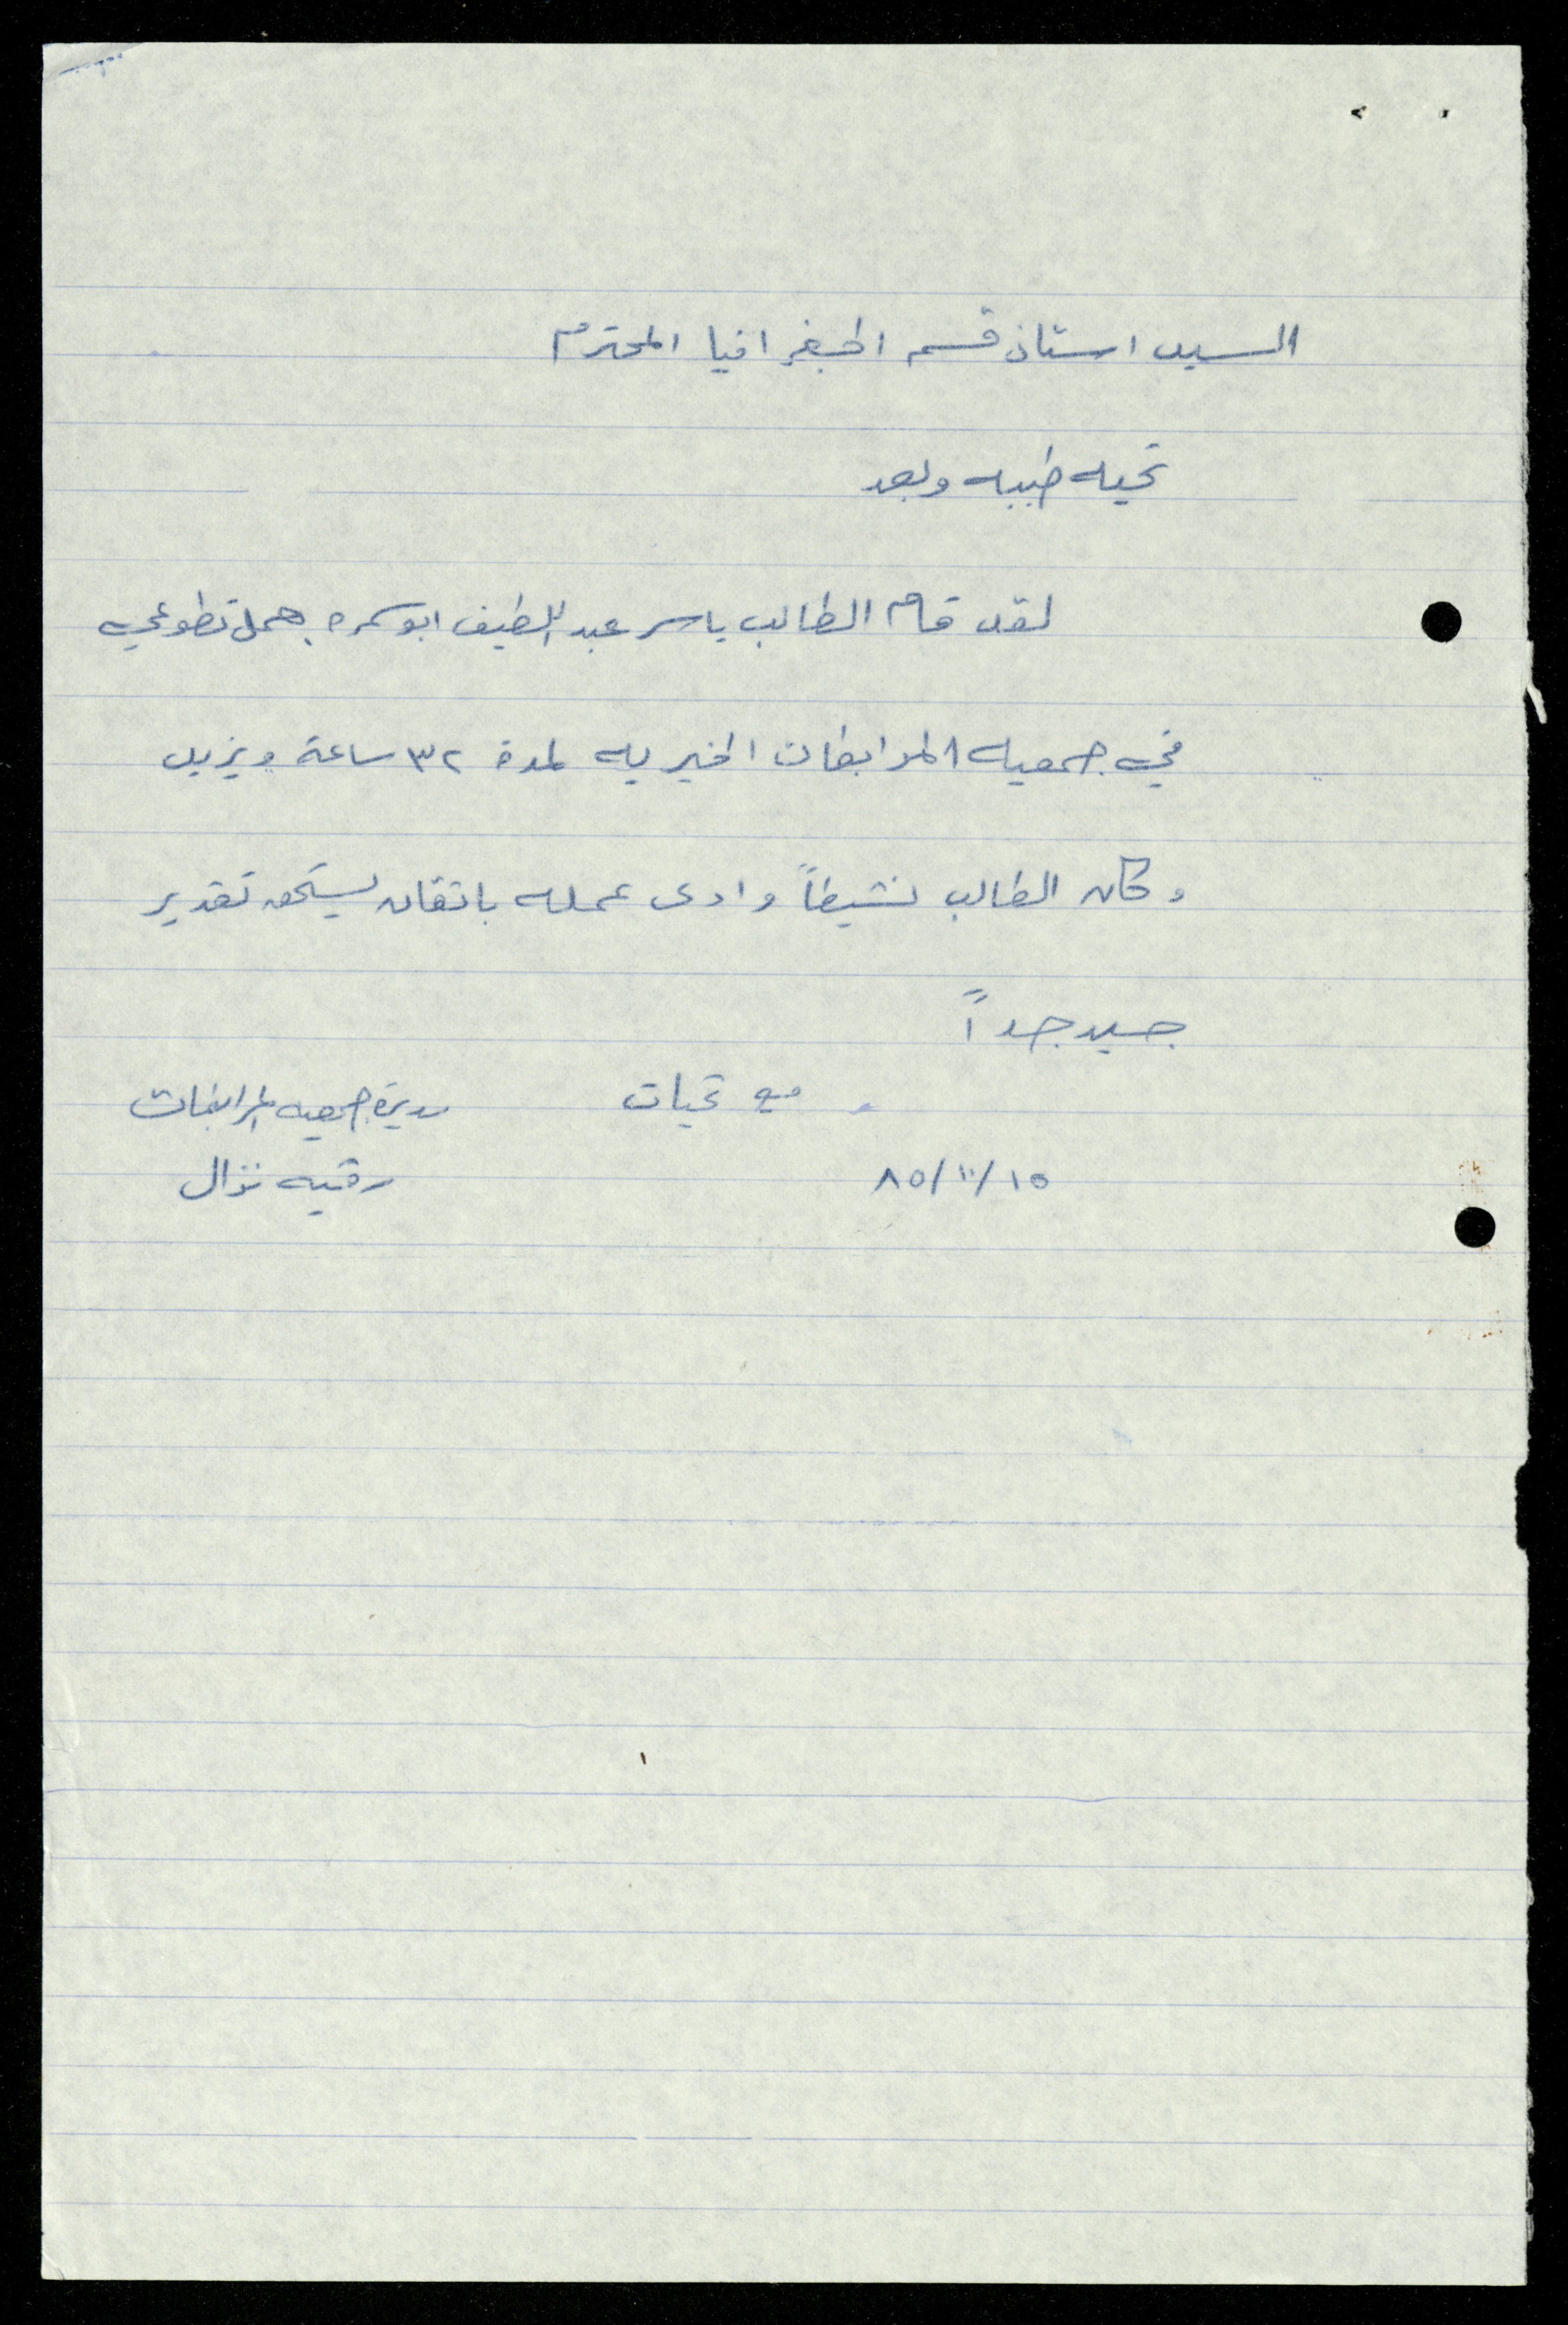 السيد استاذ قسم الجغرافيا المحترم
تحيه طيبه وبعد
لقد قام الطالب ياسر عبد اللطيف ابو سمره بعمل تطوعي
في جمعيه المرابطات الخيريه لمدة ٣٢ ساعة ويزيد
وكان الطالب نشيطاً وادى عمله باتقان يستحق تقدير
جيد جداً
مع تحيات مديرة جمعيه المرابطات
١٥/١٠/٨٥ رقيه نزال